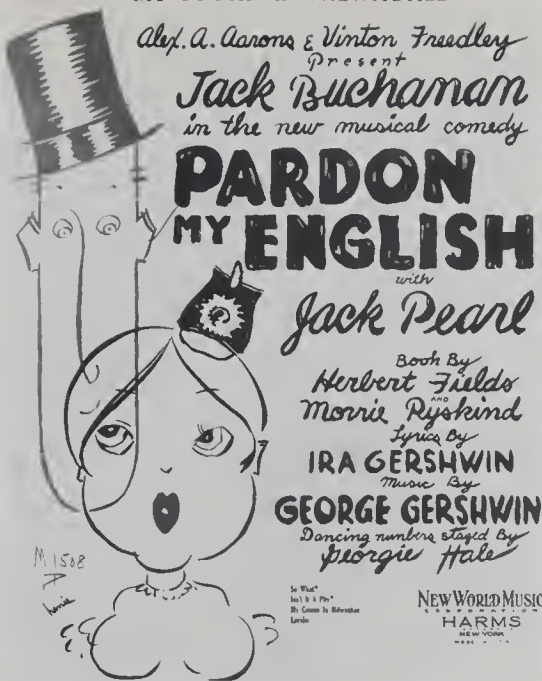 Alex. A. Aarons & Vinton Freedley
Present
Jack Buchanan
in the new musical comedy
PARDON
MY ENGLISH
with
Jack Pearl
Book By
Herbert Fields
AND
Morrie Ryskind
Lyrics By
IRA GERSHWIN
Music By
GEORGE GERSHWIN
Dancing numbers staged By
Georgie Hale
M 1508
A
So What*
Isn't It A Pity*
My Cousin In Milwaukee
Lorelei
NEW WORLD MUSIC
CORPORATION
HARMS
NEW YORK